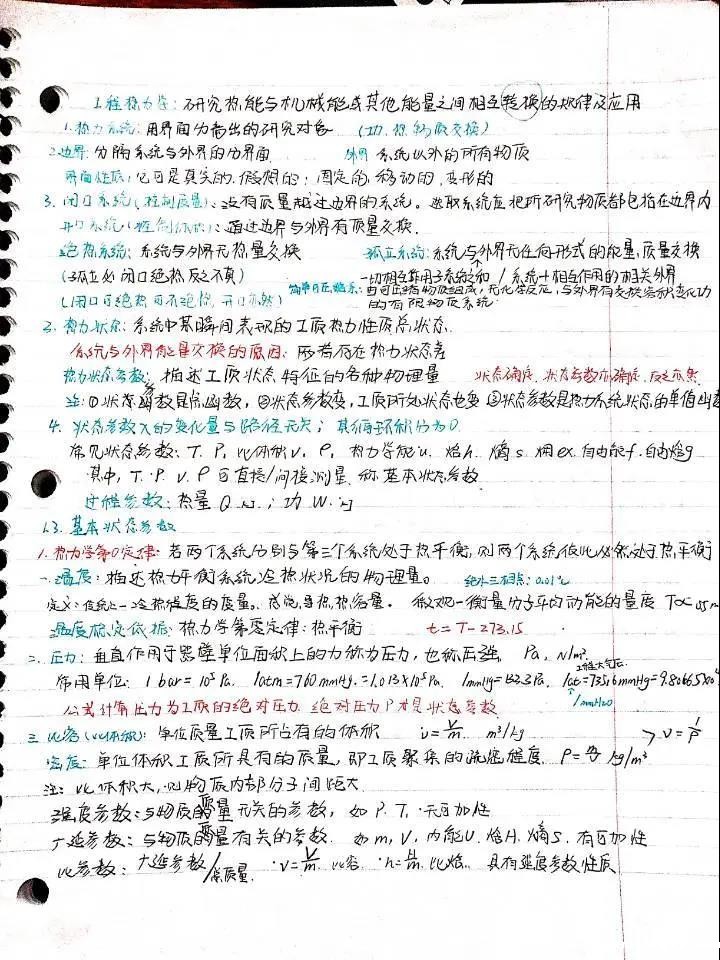 工程热力学: 研究热能与机械能或其他能量之间相互转换的规律及应用
1.热力系统: 用界面分割出的研究对象 (功.热.物质交换)
2.边界: 分隔系统与外界的分界面 外界 系统以外的所有物质
界面性质: 它可是真实的.假想的; 固定的.移动的.变形的
3. 闭口系统(控制质量): 没有质量越过边界的系统。选取系统应把所研究物质都包括在边界内
开口系统(控制体积): 通过边界与外界有质量交换.
绝热系统: 系统与外界无热量交换 孤立系统: 系统与外界无任何形式的能量,质量交换
(孤立必闭口绝热 反之不真) 一切相互作用子系统之和 / 系统+相互作用的相关外界
(闭口可绝热可不绝热,开口亦然) 简单可压缩系: 由可压缩物质组成,无化学反应,与外界有交换容积变化功
的有限物质系统
3. 热力状态: 系统中某瞬间表现的工质热力性质总状态.
系统与外界有能量交换的原因: 两者存在热力状态差
热力状态参数: 描述工质状态特征的各种物理量 状态确定,状态参数亦确定,反之亦然
注: ①状态参数是点函数, ②状态参数变,工质所处状态也变 ③状态参数是热力系统状态的单值函数
4. 状态参数x的变化量与路径无关; 其循环积分为0.
常见状态参数: T. P. 比体积v. ρ. 热力学能u. 焓h. 熵s. 㶲ex. 自由能f. 自由焓g
其中, T.P.v.ρ 可直接/间接测量. 称基本状态参数
过程参数: 热量Q.kJ; 功W.kJ
1.3. 基本状态参数
1.热力学第0定律: 若两个系统分别与第三个系统处于热平衡,则两个系统彼此必然处于热平衡
一.温度: 描述热力平衡系统冷热状况的物理量。 纯水三相点: 0.01℃
微观—衡量分子平均动能的量度 T∝0.5m
温度标定依据: 热力学第零定律: 热平衡 t=T-273.15
二. 压力: 垂直作用于器壁单位面积上的力称为压力,也称压强. Pa, N/m².
工程大气压.
常用单位: 1 bar=10⁵Pa. 1atm=760mmHg.=1.013×10⁵Pa. 1mmHg=133.3Pa. 1at=735.6mmHg=9.80665×10⁴
1mmH₂O
公式计算压力为工质的绝对压力. 绝对压力P才是状态参数
三 比容(比体积): 单位质量工质所占有的体积 v=V/m. m³/kg → v=1/ρ
密度: 单位体积工质所具有的质量,即工质聚集的疏密程度. ρ=m/V kg/m³
注: 比体积大,则物质内部分子间距大
强度参数: 与物质的质量无关的参数, 如P.T, 不可加性
广延参数: 与物质的质量有关的参数. 如m,V,内能U.焓H.熵S. 有可加性
比参数: 广延参数/总质量. ·v=V/m. 比容. ·h=H/m. 比焓. 具有强度参数性质